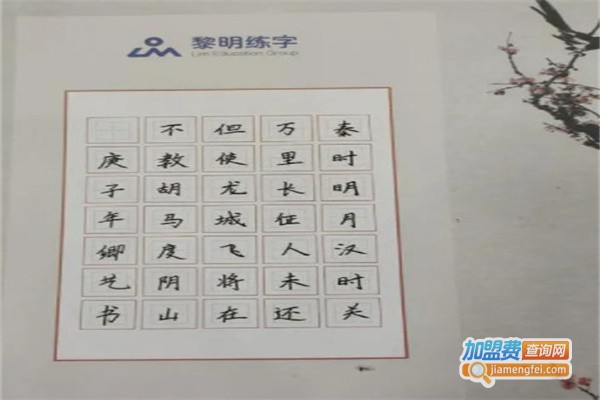 黎明练字
Lim Education Group
秦时明月汉时关
万里长征人未还
但使龙城飞将在
不教胡马度阴山
庚子年卿艺书
加盟费查询网
jiamengfei.com